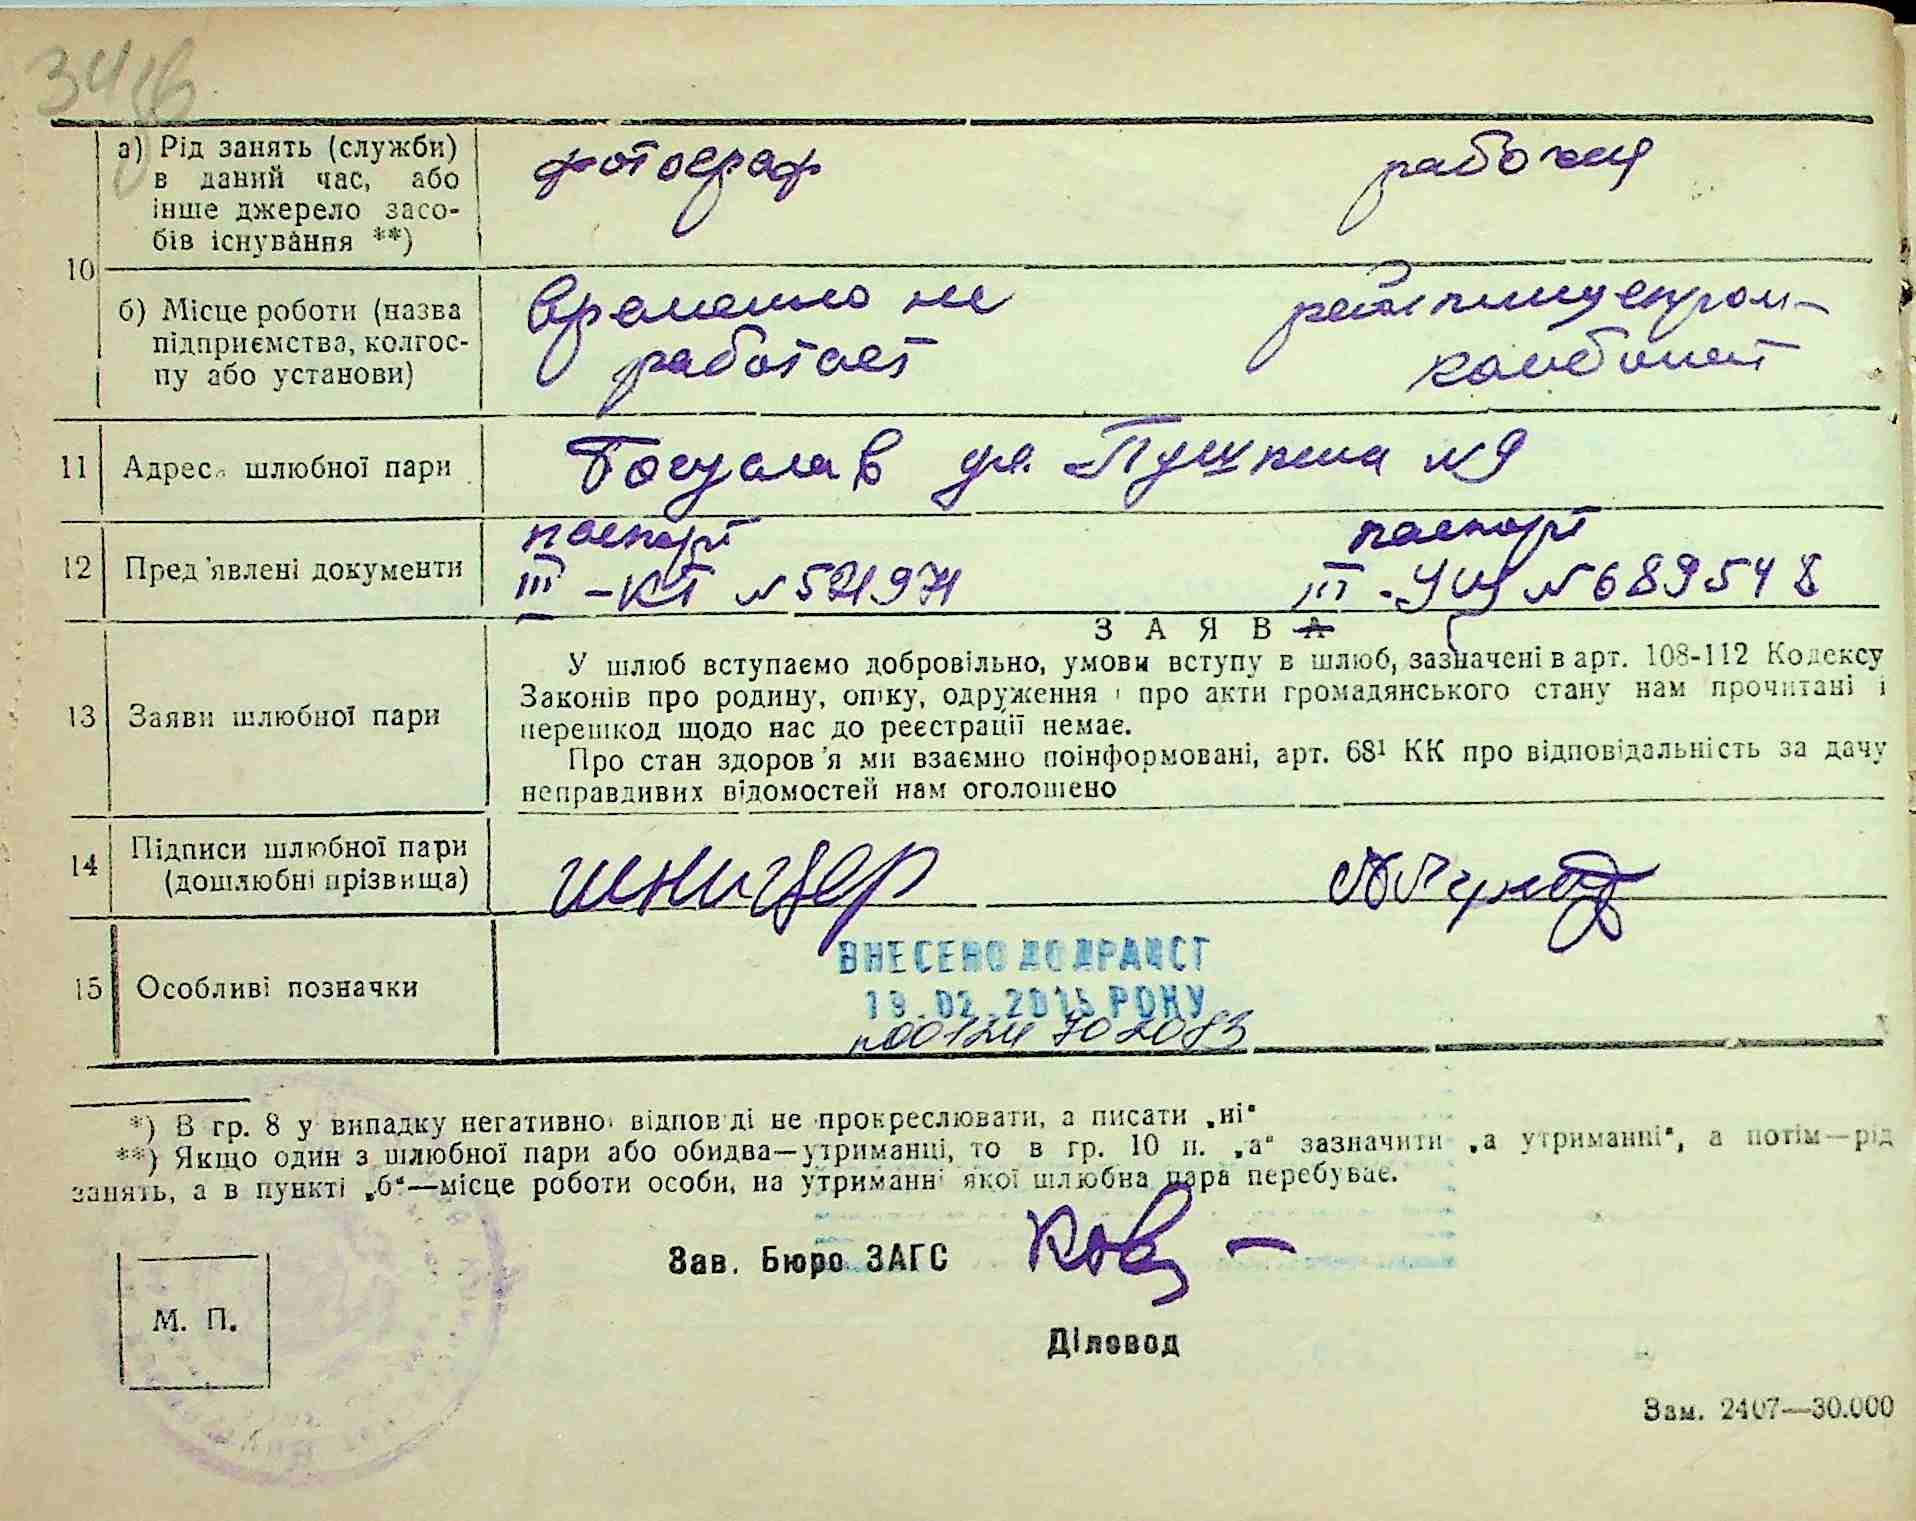 34
а) Рід занять (служби) в даний час, або інше джерело засобів існування **)
фотограф
рабочая
10
б) Місце роботи (назва підприємства, колгоспу або установи)
Временно не работает
райпищепром-
комбинат
11 Адреса шлюбної пари
Богуслав ул. Пушкина №9
12 Пред'явлені документи
паспорт
паспорт
III-КТ №
III - №689548
ЗАЯВА
13 Заяви шлюбної пари
У шлюб вступаємо добровільно, умови вступу в шлюб, зазначені в арт. 108-112 Кодексу
Законів про родину, опіку, одруження і про акти громадянського стану нам прочитані і
перешкод щодо нас до реєстрації немає.
Про стан здоров'я ми взаємно поінформовані, арт. 68¹ КК про відповідальність за дачу
неправдивих відомостей нам оголошено
14 Підписи шлюбної пари (дошлюбні прізвища)
Шницер
15 Особливі позначки
ВНЕСЕНО ДО ДРАЦСТ
19.02.2015 РОКУ
*) В гр. 8 у випадку негативної відповіді не прокреслювати, а писати „ні"
**) Якщо один з шлюбної пари або обидва—утриманці, то в гр. 10 п. „а" зазначити „а утриманні", а потім—рід
занять, а в пункті „б"—місце роботи особи, на утриманні якої шлюбна пара перебуває.
Зав. Бюро ЗАГС
Діловод
М. П.
Зам. 2407—30.000